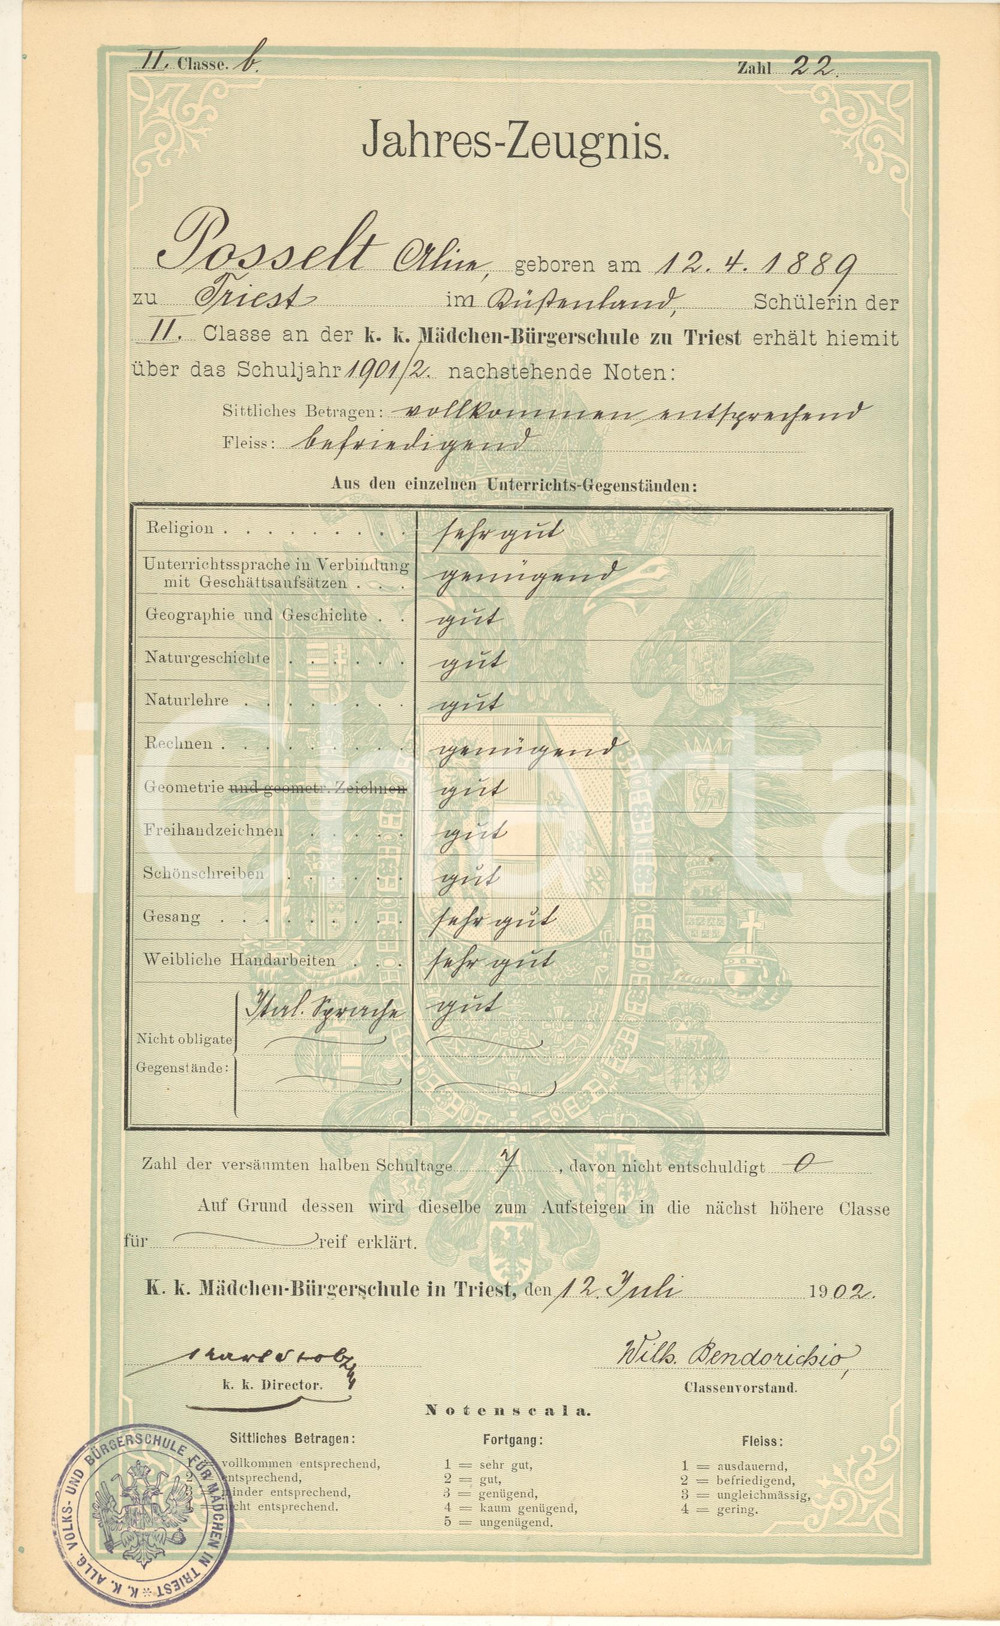 II. Classe. b.
Zahl 22.
Jahres-Zeugnis.
Posselt Alice, geboren am 12. 4. 1889
zu Triest im Küstenland, Schülerin der
II. Classe an der k. k. Mädchen-Bürgerschule zu Triest erhält hiemit
über das Schuljahr 1901/2. nachstehende Noten:
Sittliches Betragen: vollkommen entsprechend
Fleiss: befriedigend
Aus den einzelnen Unterrichts-Gegenständen:
Religion . . . . . . . . . sehr gut
Unterrichtssprache in Verbindung
mit Geschäftsaufsätzen . . . genügend
Geographie und Geschichte . . gut
Naturgeschichte . . . . . . gut
Naturlehre . . . . . . . . gut
Rechnen . . . . . . . . . genügend
Geometrie und geometr. Zeichnen gut
Freihandzeichnen . . . . . gut
Schönschreiben . . . . . . gut
Gesang . . . . . . . . . sehr gut
Weibliche Handarbeiten . . . sehr gut
Ital. Sprache gut
Nicht obligate
Gegenstände:
iCharta
Zahl der versäumten halben Schultage 7, davon nicht entschuldigt 0
Auf Grund dessen wird dieselbe zum Aufsteigen in die nächst höhere Classe
für reif erklärt.
K. k. Mädchen-Bürgerschule in Triest, den 12. Juli 1902.
Wilh. Bendorichio,
k. k. Director.
Classenvorstand.
Notenscala.
Sittliches Betragen: Fortgang: Fleiss:
vollkommen entsprechend, 1 = sehr gut, 1 = ausdauernd,
entsprechend, 2 = gut, 2 = befriedigend,
minder entsprechend, 3 = genügend, 3 = ungleichmässig,
nicht entsprechend. 4 = kaum genügend, 4 = gering.
5 = ungenügend.
K. K. ALLG. VOLKS- UND BÜRGERSCHULE FÜR MÄDCHEN IN TRIEST